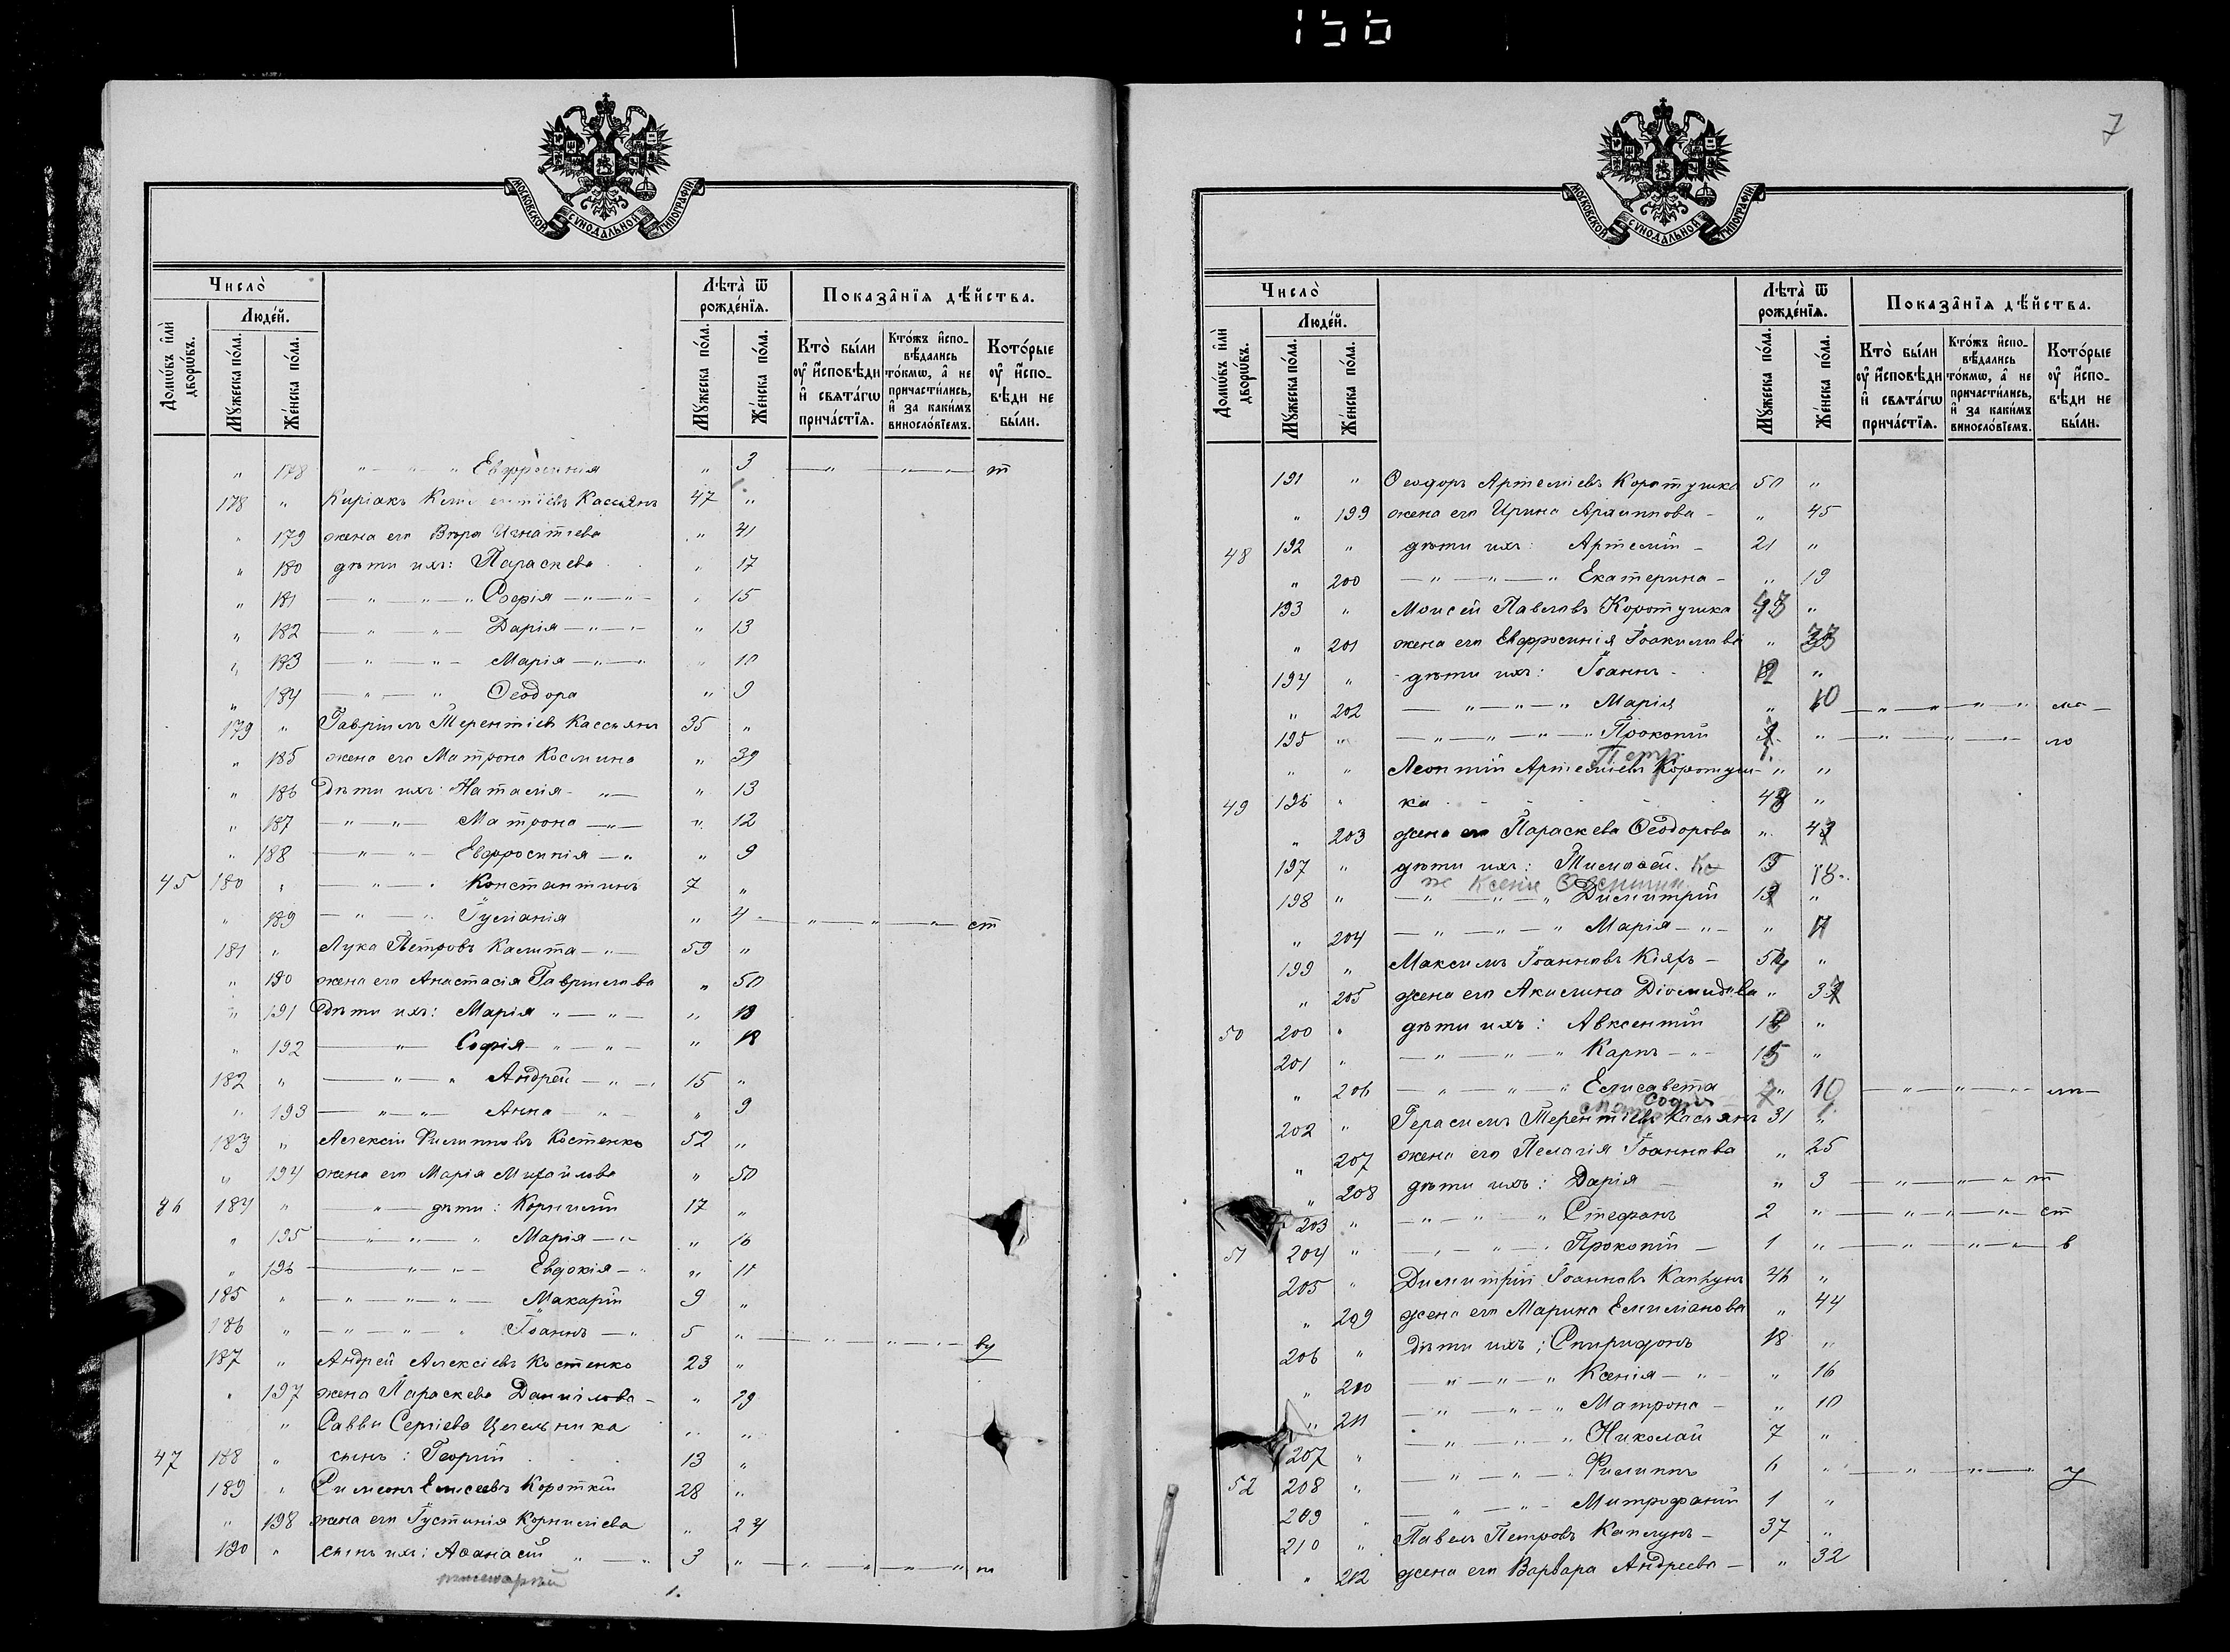 156
МОСКОВСКОЙ СУНОДАЛЬНОЙ ТИПОГРАФІИ
Число̀
Людéй.
Домѡ́въ и҆лѝ дворѡ́въ.
Мꙋ́жеска пóла.
Жéнска пóла.
Лѣ́та ѿ рождéнїѧ.
Мꙋ́жеска пóла.
Жéнска пóла.
Показа̑нїѧ дѣ́йства.
Кто̀ бы́ли ᲂу҆ и҆сповѣди и҆ свѧта́гѡ прича́стїѧ.
Кто́жъ и҆сповѣ́дались то́кмѡ, а҆ не причасти́лись, и҆ за каки́мъ винослóвїемъ.
Котóрые ᲂу҆ и҆спóвѣди не бы́ли.
" 178 " — " — " Евфросинія " 3 — " — " — " — т
178 " Киріакъ Кассьянъ 47 "
" 179 жена его Вѣра Игнатіева " 41
" 180 дѣти ихъ: Параскева " 17
" 181 — " — " — " Софія — " — " — " 15
" 182 — " — " — Дарія — " — " " 13
" 183 — " — " — Марія — " — " " 10
" 184 — " — " Ѳеодора " 9
179 " Гавріилъ Терентіевъ Кассьянъ 35 "
" 185 жена его Матрона Космина " 39
" 186 Дѣти ихъ: Наталія — " — " 13
" 187 — " — " — Матрона — " — " 12
" 188 — " — " — Евфросинія — " " 9
45 180 " — " — " Константинъ 7 "
" 189 — " — " Іуліанія " 4 — " — " — " — ст
181 " Лука Петровъ Калита — " — 59 "
" 190 жена его Анастасія Гавриилова " 50
" 191 Дѣти ихъ: Марія " — " — " 19
" 192 — " Софія — " — " — " 18
182 " — " — " Андрей — " — 15 "
" 193 — " — " — Анна — " — " 9
183 " Алексій Филипповъ Костенко 52 "
" 194 жена его Марія Михайлова " 50
46 184 " — " — дѣти: Корнилій 17 "
" 195 — " — " — " Марія — " — " 16
" 196 — " — " — Евдокія — " " 11
185 " — " — " — " — Макарій 9 "
186 " — " — " — " Іоаннъ — " 5 " — " — " — " ву
187 " Андрей Алексіевъ Костенко 23 "
" 197 жена Параскева Даниілова — " 29
" Саввы Сергіева Цегельника " "
47 188 " сынъ: Георгій 13 "
189 " Симеонъ Елисеевъ Короткій 28 "
" 198 жена его Іустинія Корниліева " 24
190 " сынъ ихъ: Аѳанасій " — " 3 " — " — " — " — т
1.
7
МОСКОВСКОЙ СУНОДАЛЬНОЙ ТИПОГРАФІИ
Число̀
Людéй.
Домѡ́въ и҆лѝ дворѡ́въ.
Мꙋ́жеска пóла.
Жéнска пóла.
Лѣ́та ѿ рождéнїѧ.
Мꙋ́жеска пóла.
Жéнска пóла.
Показа̑нїѧ дѣ́йства.
Кто̀ бы́ли ᲂу҆ и҆сповѣди и҆ свѧта́гѡ прича́стїѧ.
Кто́жъ и҆сповѣ́дались то́кмѡ, а҆ не причасти́лись, и҆ за каки́мъ винослóвїемъ.
Котóрые ᲂу҆ и҆спóвѣди не бы́ли.
191 " Ѳеодоръ Артеміевъ Коротушка 50 "
" 199 жена его Ирина Архиппова — " 45
48 192 " дѣти ихъ: Артемій — 21 "
" 200 — " — " — " Екатерина — " 19
193 " Моисей Павловъ Коротушка "
" 201 жена его Евфросинія Іоакимова " 33
194 " дѣти ихъ: Іоаннъ 12 "
" 202 — " — " — " Марія " 10 — " — " — " — "
195 " — " — " — " — " Прокопій " — " — " — "
Петръ 1.
" " Леонтій Артеміевъ Коротуш- " "
49 196 " ка "
" 203 жена его Параскева Ѳеодорова "
197 " дѣти ихъ: Тимоѳей 15
Ксенія 18
198 " — " — " — " Димитрій "
" 204 — " — " — " Марія — " — "
199 " Максимъ Іоанновъ Кіяхъ — 54 "
" 205 жена его Акилина Діомидова "
50 200 " дѣти ихъ: Авксентій "
201 " — " — " — " Карпъ — " — 15 "
" 206 — " — " — " Елисавета " 10 — " — " — " —
Софія
202 " Герасимъ Терентіевъ Касьянъ 31 "
" 207 жена его Пелагія Іоаннова " 25
" 208 дѣти ихъ: Дарія — " 3 — " — " — " т
203 " — " — " — " Стефанъ 2 " — " — " — " — ст
51 204 " — " — " — " Прокопій — 1 " — " — " — в
205 " Димитрій Іоанновъ Каплунъ 46 "
" 209 жена его Марина Емиліанова " 44
206 " дѣти ихъ: Спиридонъ 18 "
" 210 — " — " — " Ксенія — " — " 16
" 211 — " — " — " Матрона — " 10
207 " — " — " — " Николай 7 "
52 208 " — " — " — " Филиппъ 6 " — " — " — " — у
209 " — " — " — Митрофаній 1 "
210 " Павелъ Петровъ Каплунъ — 37 "
" 212 жена его Варвара Андреева — " 32